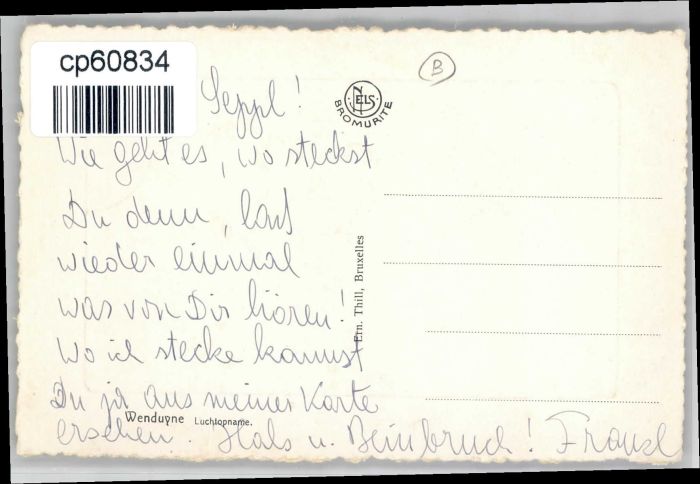 cp60834
B
NELS
BROMURITE
Seppl!
Wie geht es, wo steckst
Du denn, laß
wieder einmal
was von Dir hören!
Wo ich stecke kannst
Du ja aus meiner Karte
ersehen. Hals u. Beinbruch! Franzl
Ern. Thill, Bruxelles
Wenduyne Luchtopname.